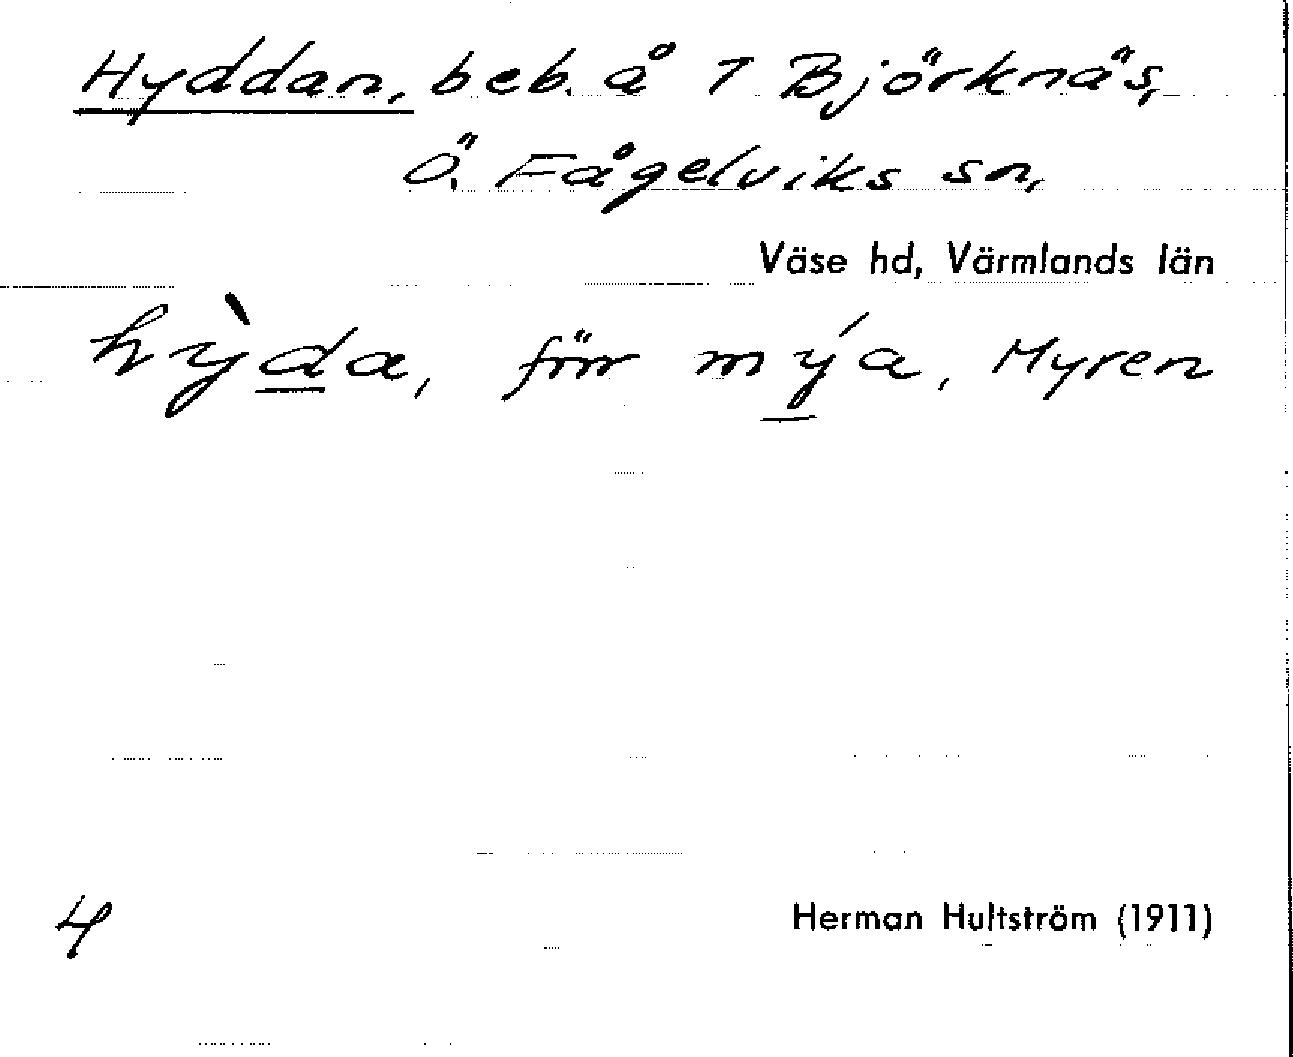 Hyddan, beb. å 1 Björknäs,
Ö. Fågelviks sn,
Väse hd, Värmlands län
hỳda, förr mýa, Myren
4
Herman Hultström (1911)